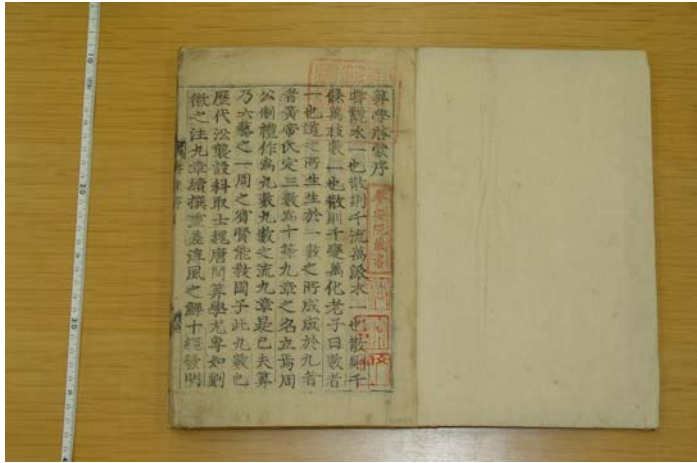 算學啓蒙序
嘗觀水一也散則千流萬派木一也散則千
條萬枝數一也散則千變萬化老子曰數者
一也道之所生生於一數之所成成於九昔
者黃帝氏定三數為十等九章之名立焉周
公制禮作為九數九數之流九章是已夫算
乃六藝之一周之賢能教國子此九數也
歷代沿襲設科取士魏唐間算學尤專如劉
徽之注九章續撰重差淳風之解十經發明
養安院藏書
20
30